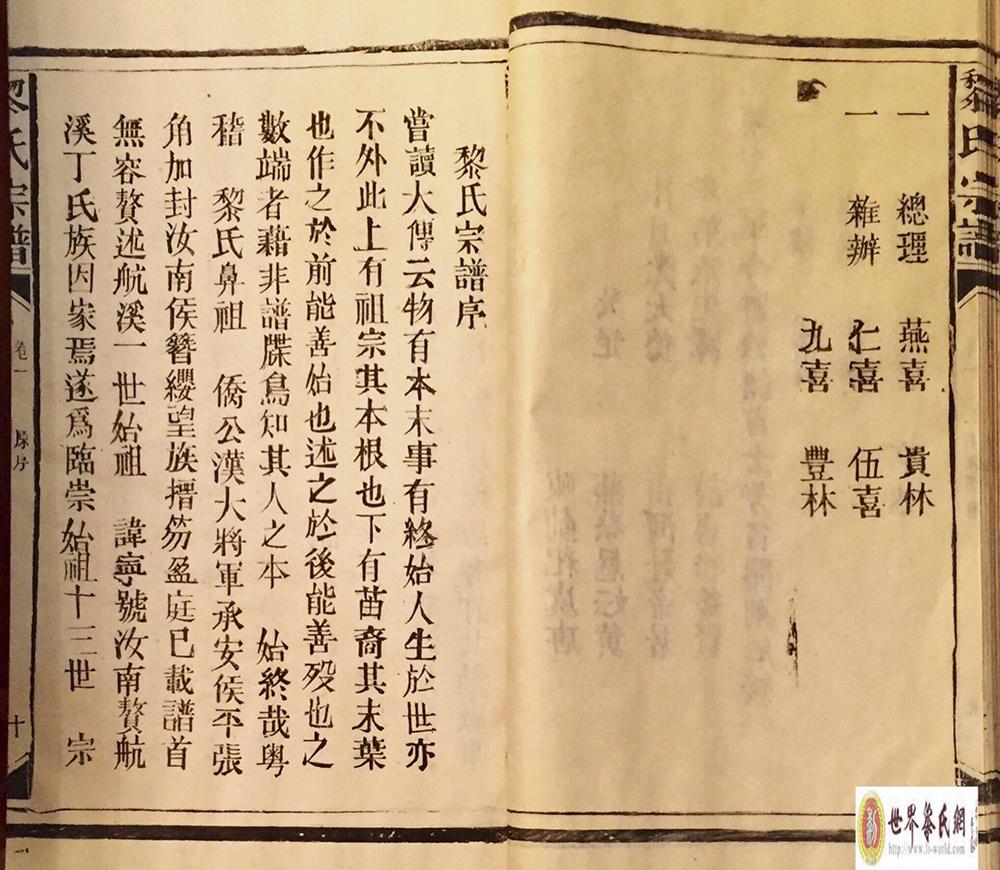 黎氏宗譜
一 總理 燕喜 貴林
一 雜辦 仁喜 伍喜
九喜 豐林
黎氏宗譜序
嘗讀大傳云物有本末事有終始人生於世亦
不外此上有祖宗其本根也下有苗裔其末葉
也作之於前能善始也述之於後能善殁也之
數端者藉非譜牒烏知其人之本 始終哉粤
稽 黎氏鼻祖 僑公漢大將軍承安侯平張
角加封汝南侯簪纓望族搢笏盈庭已載譜首
無容贅述航溪一世始祖 諱寧號汝南贅航
溪丁氏族因家焉遂爲臨崇始祖十三世 宗
黎氏宗譜 卷一 原序 十
世界黎氏網
http://www.li-world.com